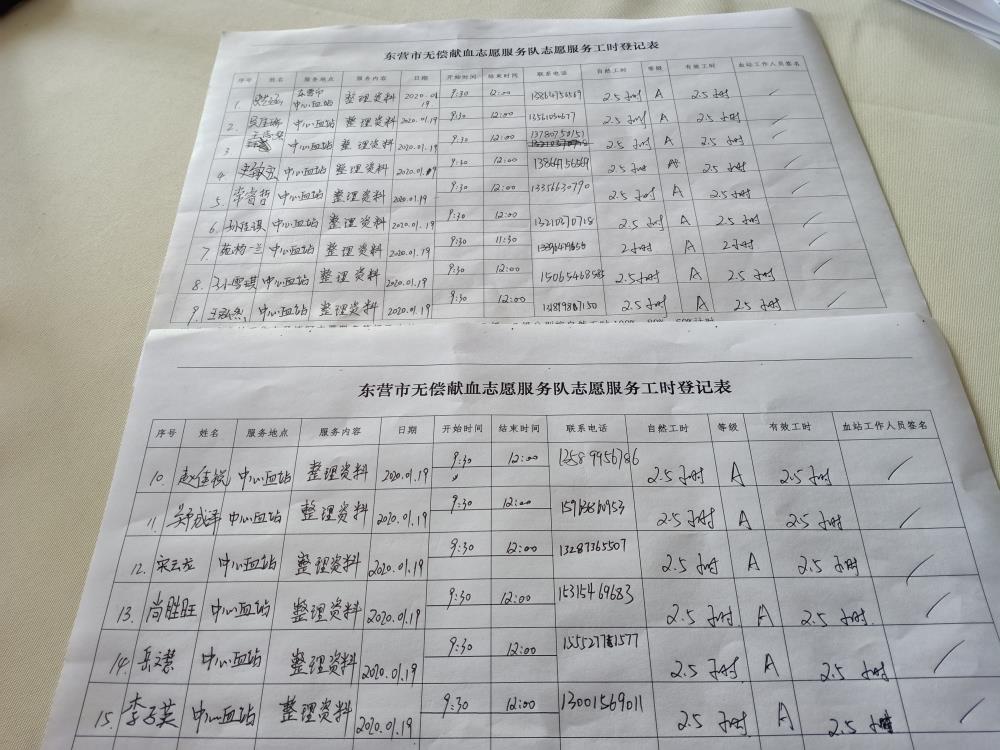 东营市无偿献血志愿服务队志愿服务工时登记表
序号 姓名 服务地点 服务内容 日期 开始时间 结束时间 联系电话 自然工时 等级 有效工时 血站工作人员签名
1. 东营市中心血站 整理资料 2020.01.19 9:30 12:00 2.5小时 A 2.5小时
2. 中心血站 整理资料 2020.01.19 9:30 12:00 2.5小时 A 2.5小时
3 中心血站 整理资料 2020.01.19 9:30 12:00 13780750151 2.5小时 A 2.5小时
4. 中心血站 整理资料 2020.01.19 9:30 12:00 13864756569 2.5小时 A 2.5小时
5. 常睿哲 中心血站 整理资料 2020.01.19 9:30 12:00 13356630790 2.5小时 A 2.5小时
6. 孙佳琪 中心血站 整理资料 2020.01.19 9:30 12:00 13210370718 2.5小时 A 2.5小时
7. 中心血站 整理资料 2020.01.19 9:30 11:30 2小时 A 2小时
8. 孙雪琪 中心血站 整理资料 2020.01.19 9:30 12:00 2.5小时 A 2.5小时
9. 中心血站 整理资料 2020.01.19 9:30 12:00 2.5小时 A 2.5小时
东营市无偿献血志愿服务队志愿服务工时登记表
序号 姓名 服务地点 服务内容 日期 开始时间 结束时间 联系电话 自然工时 等级 有效工时 血站工作人员签名
10. 赵佳悦 中心血站 整理资料 2020.01.19 9:30 12:00 2.5小时 A 2.5小时
11. 中心血站 整理资料 2020.01.19 9:30 12:00 2.5小时 A 2.5小时
12. 宋云龙 中心血站 整理资料 2020.01.19 9:30 12:00 13287365507 2.5小时 A 2.5小时
13. 尚胜旺 中心血站 整理资料 2020.01.19 9:30 12:00 15315469683 2.5小时 A 2.5小时
14. 岳文慧 中心血站 整理资料 2020.01.19 9:30 12:00 2.5小时 A 2.5小时
15. 李子英 中心血站 整理资料 2020.01.19 9:30 12:00 13001569011 2.5小时 A 2.5小时